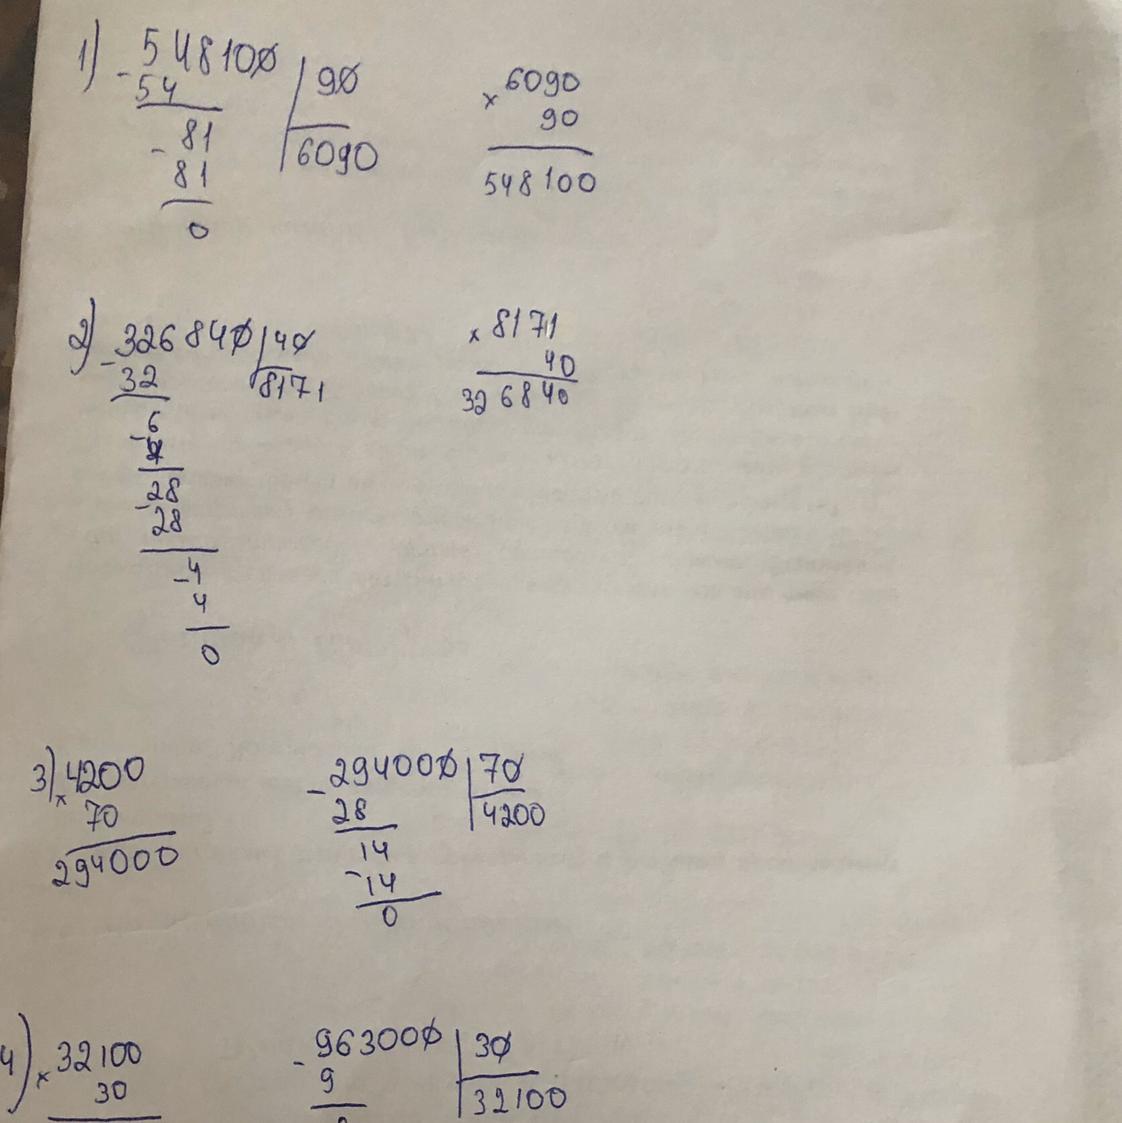 1) - 548100 | 90
54
6090
- 81
81
0
× 6090
90
548100
2) - 326840 | 40
32
8171
- 6
4
- 28
28
- 4
4
0
× 8171
40
326840
3) × 4200
70
294000
- 294000 | 70
28
4200
14
- 14
0
4) × 32100
30
- 963000 | 30
9
32100